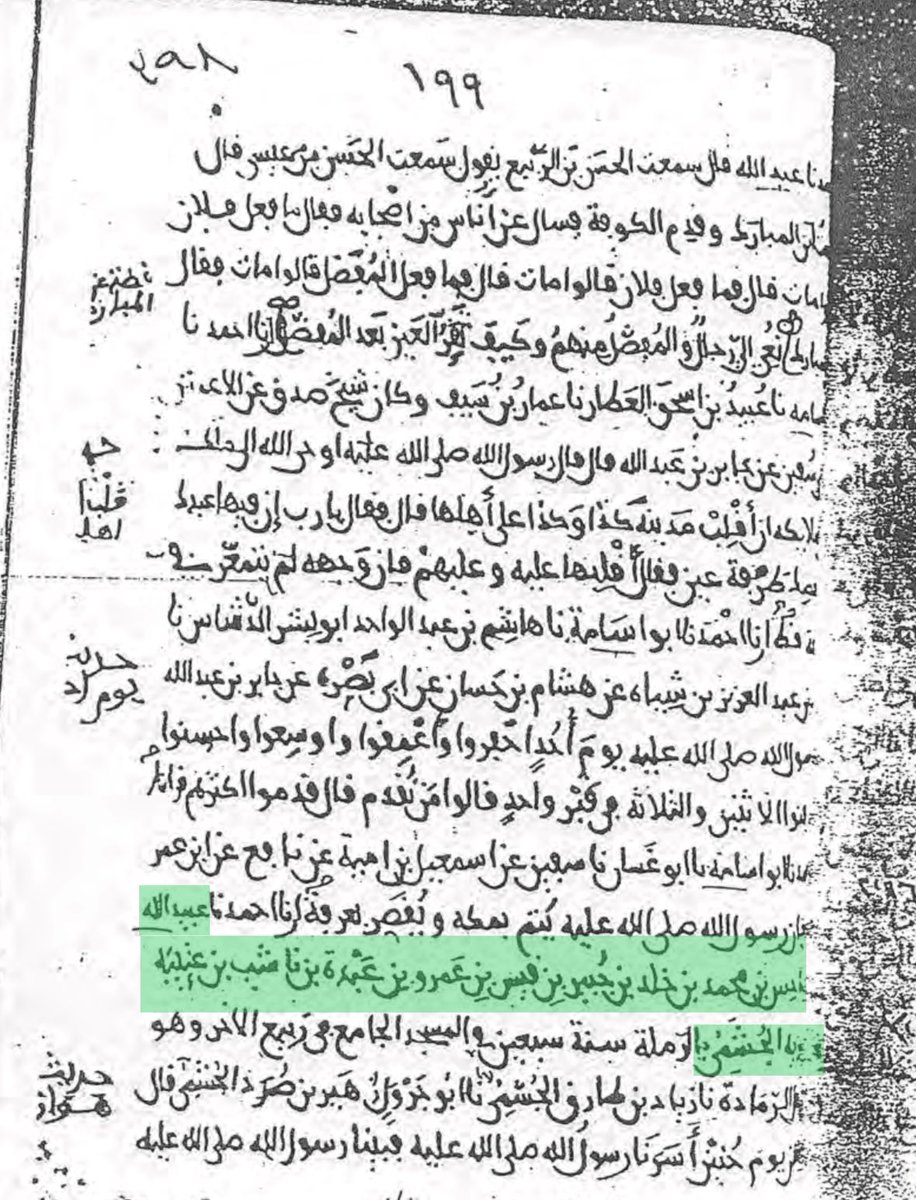 ١٩٩
نا عبد الله قال سمعت الحسن بن الربيع يقول سمعت الحسن بن عيسى قال
المبارك وقدم الكوفة فسال عن أناس من اصحابه فقال ما فعل فلان
مات قال فما فعل فلان قالوا مات قال فما فعل المفضل قالوا مات فقال
نعي الرجال والمفضل منهم وكيف تقر العين بعد المفضل انا احمد نا
نا عبيد بن اسحق العطار نا عمار بن سيف وكان شيخ صدق عن الاعمش
سفين عن جابر بن عبد الله قال قال رسول الله صلى الله عليه اوحى الله الى ملك
أقلب مدينة كذا وكذا على أهلها قال فقال يا رب إن فيها عبدك
طرفة عين فقال أقلبها عليه وعليهم فإن وجهه لم يتمعر في
قط انا احمد نا ابو اسامة نا هاشم بن عبد الواحد ابو بشر الدشاس نا
بن عبد العزيز بن شباه عن هشام بن حسان عن ابي نضرة عن جابر بن عبد الله
رسول الله صلى الله عليه يوم أحد احفروا وأعمقوا واوسعوا واحسنوا
الاثنين والثلاثة في قبر واحد قالوا من نقدم قال قدموا اكثرهم قرانا
ابو اسامة نا ابو غسان نا سفين عن اسمعيل بن امية عن نافع عن ابن عمر
رسول الله صلى الله عليه يتم بمكة ويقصر بعرفة انا احمد نا عبيد الله
بن محمد بن خلد بن جبير بن قيس بن عمرو بن عبدة بن ناشب بن
الجشمي بالرملة سنة سبعين في المسجد الجامع في ربيع الاخر وهو
الرمادة نا زياد بن طارق الجشمي نا ابو جرول زهير بن صرد الجشمي قال
يوم حنين أسرنا رسول الله صلى الله عليه فبينا رسول الله صلى الله عليه
المبارك
حديث
يوم
حديث
هوازن